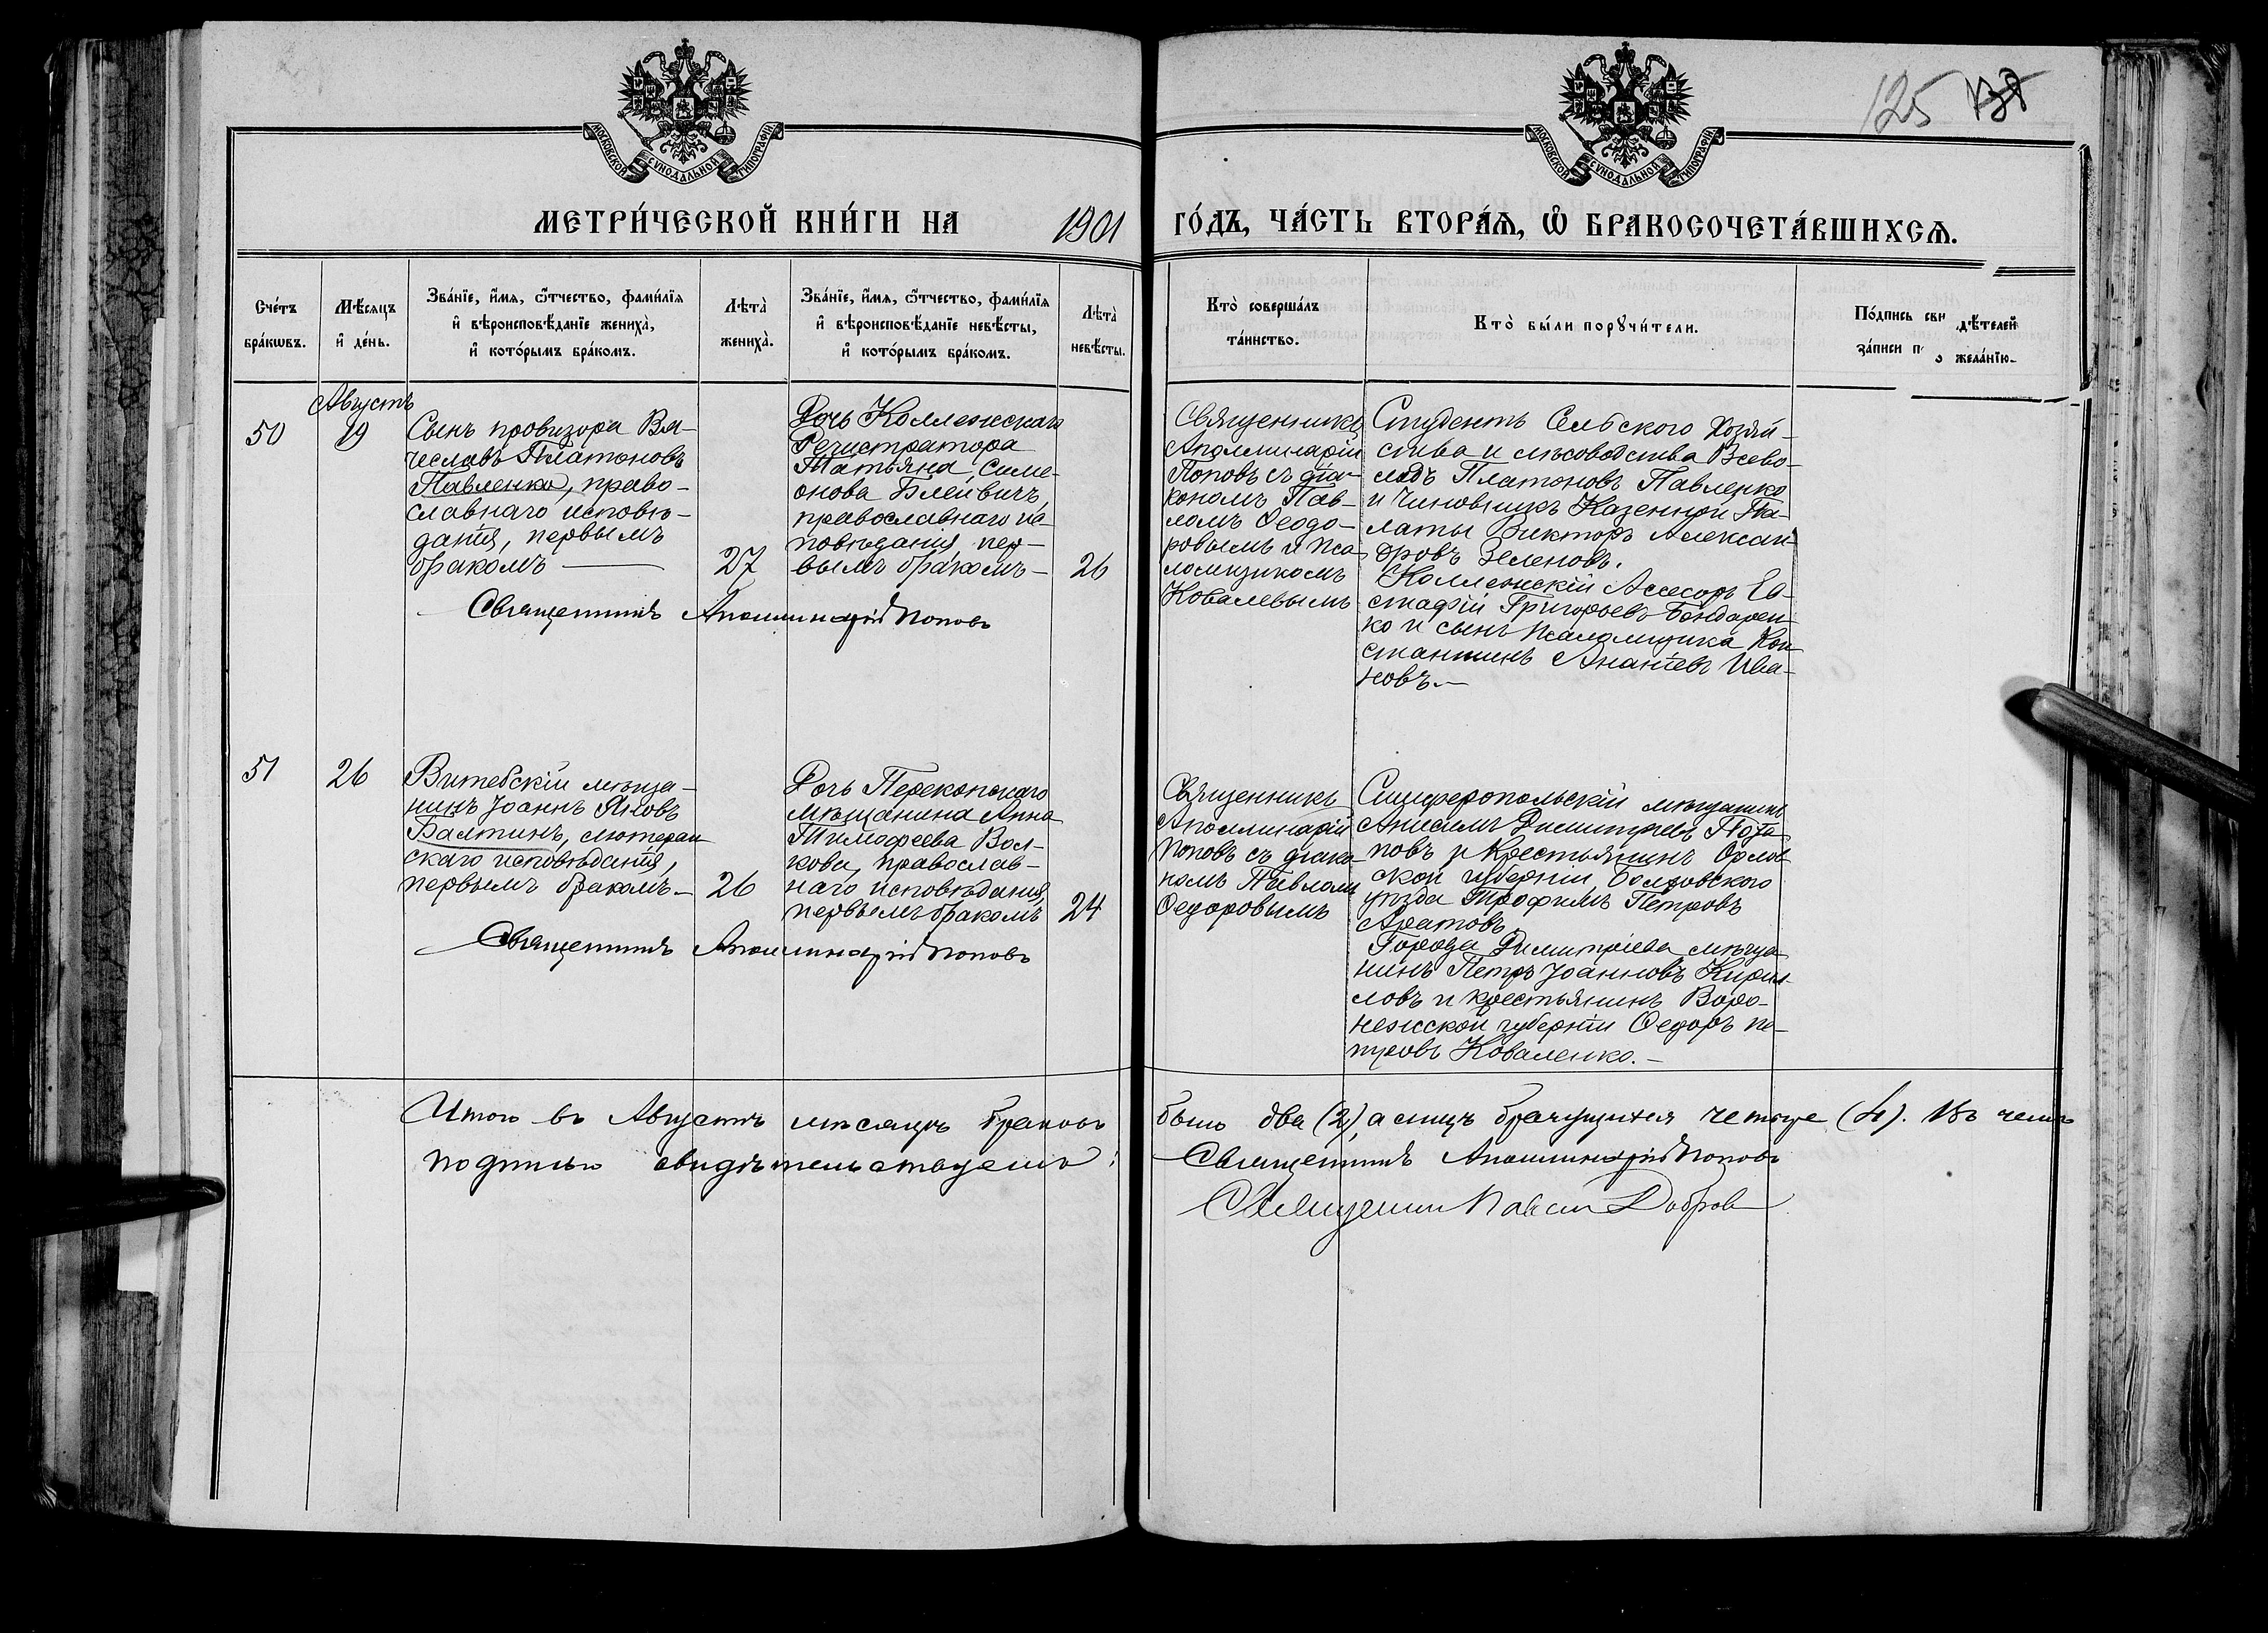 125
МОСКОВСКОЙ СУНОДАЛЬНОЙ ТИПОГРАФІИ
МОСКОВСКОЙ СУНОДАЛЬНОЙ ТИПОГРАФІИ
МЕТРИ́ЧЕСКОЙ КНИ́ГИ НА 1901 ГО́ДЪ, ЧА́СТЬ ВТОРА́Ѧ, Ѽ БРАКОСОЧЕТА́ВШИХСѦ.
Сче́тъ
бра́кѡвъ.
Мѣ́сяцъ
и҆ де́нь.
Зва́нїе, и҆́мя, ѻ҆́тчество, фами́лїя
и҆ вѣроисповѣ́данїе жениха̀,
и҆ кото́рымъ бра́комъ.
Лѣта̀
жениха̀.
Зва́нїе, и҆́мя, ѻ҆́тчество, фами́лїя
и҆ вѣроисповѣ́данїе невѣ́сты,
и҆ кото́рымъ бра́комъ.
Лѣта̀
невѣ́сты.
Кто̀ соверша́лъ
та́инство.
Кто̀ бы́ли порꙋчи́тели.
По́дпись сви дѣ́телей
за́писи п о жела́нїю.
Августъ
50
19
Сынъ провизора Вя-
чеславъ Платоновъ
Павленко, право-
славнаго исповѣ-
данія, первымъ
бракомъ
27
Дочь Коллежскаго
Регистратора
Татьяна Симе-
онова Блейвичъ,
православнаго ис-
повѣданія, пер-
вымъ бракомъ
26
Священникъ
Аполлинарій
Поповъ съ діа-
кономъ Пав-
ломъ Ѳеодо-
ровымъ и пса-
ломщикомъ
Ковалевымъ
Студентъ Сельского Хозяй-
ства и лѣсоводства Всево-
лодъ Платоновъ Павленко
и Чиновникъ Казенной Па-
латы Викторъ Алексан-
дровъ Зеленовъ.
Коллежскій Асессоръ Ев-
стафій Григорьевъ Бондарен-
ко и сынъ псаломщика Кон-
стантинъ Ананіевъ Ива-
новъ.—
Священникъ Аполлинарій Поповъ
51
26
Витебскій мѣща-
нинъ Іоаннъ Яковъ
Балтинъ, лютеран
скаго исповѣданія,
первымъ бракомъ—
26
Дочь Перекопскаго
мѣщанина Анна
Тимофеева Вол-
кова, православ-
наго исповѣданія,
первымъ бракомъ
24
Священникъ
Аполлинарій
Поповъ съ діако-
номъ Павломъ
Ѳедоровымъ
Симферопольскій мѣщанинъ
Анисимъ Димитріевъ Пота-
повъ и Крестьянинъ Орлов-
ской губерніи Болховского
уѣзда Трофимъ Петровъ
Аратовъ.
Города Димитріева мѣща-
нинъ Петръ Іоанновъ Кирил-
ловъ и крестьянинъ Воро-
нежской губерніи Ѳедоръ Пе-
тровъ Коваленко.—
Священникъ Аполлинарій Поповъ
Итого въ Августѣ мѣсяцѣ браковъ было два (2), а лицъ брачущихся четыре (4). Въ чемъ
подписью свидѣтельствуемъ: Священникъ Аполлинарій Поповъ
Священникъ Добров